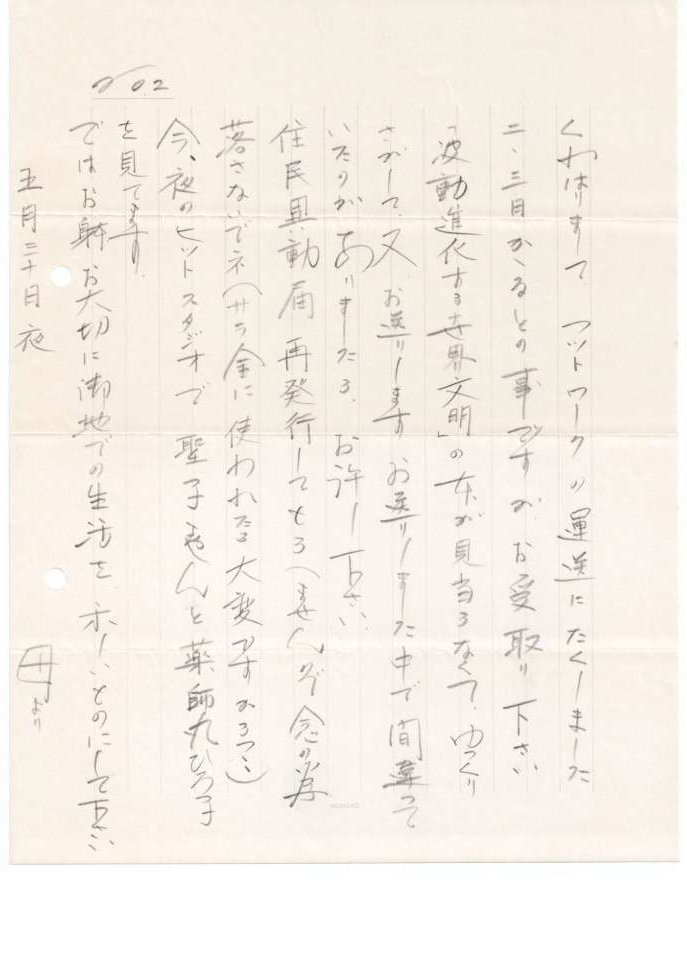 No.2
くわはりまして フットワークの運送にたくしました
二、三日かゝるとの事ですが、お受取り下さい
「波動進化する世界文明」の本が見当らなくて、ゆっくり
さがして、又、お送りします お送りしました中で間違って
いたのがありましたら、お許し下さい、
住民異動届 再発行してもらへませんので 念の為
落さないでネ（サラ金に使われたら大変ですからつ）
今、夜のヒットスタジオで 聖子ちゃんと薬師丸ひろ子
を見てます。
ではお躰お大切に御地での生活を、ホーいとのにして下さい
五月三十日夜
母より
KOKUYO